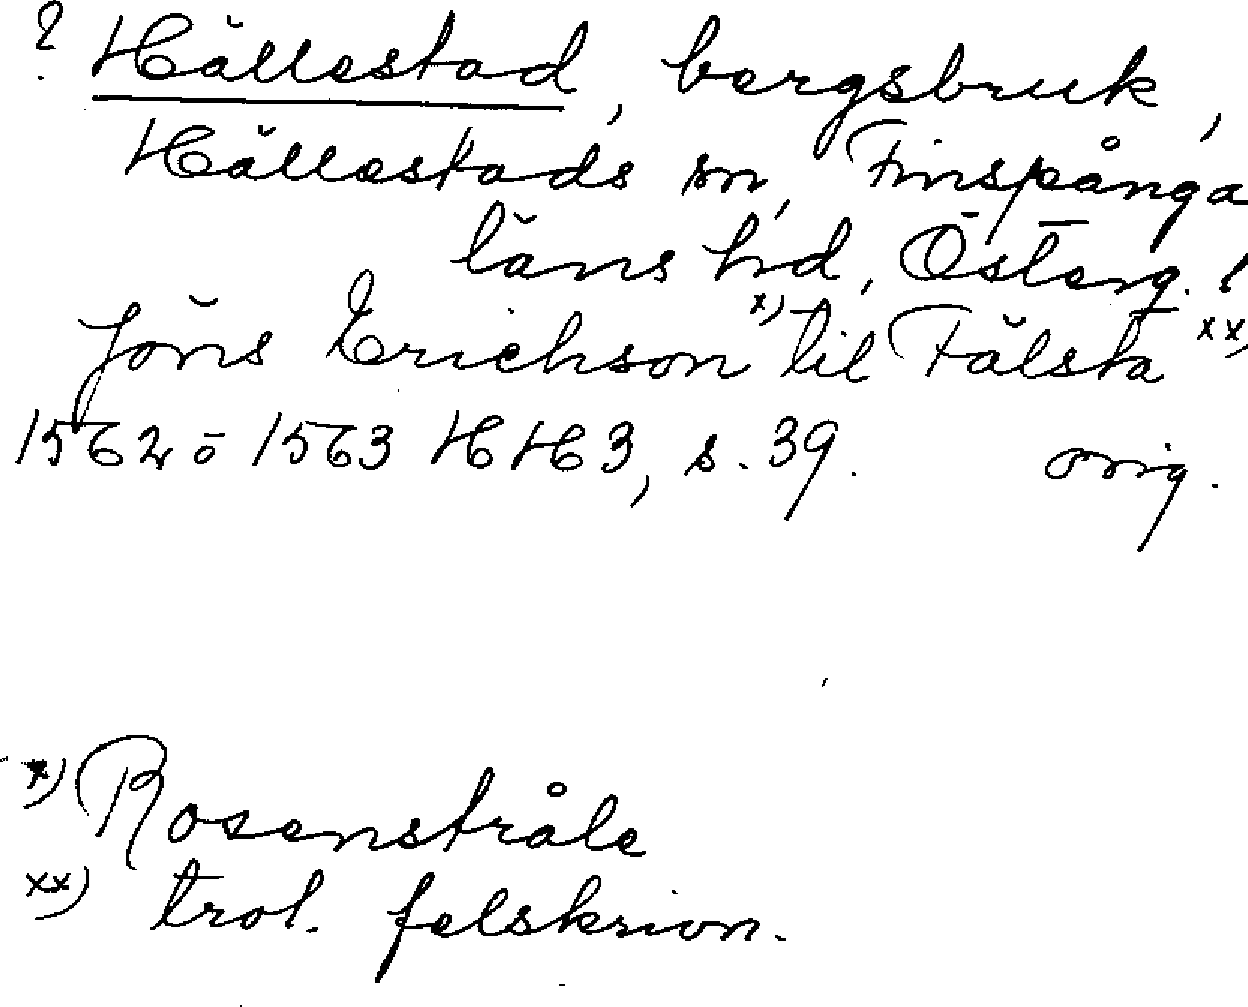 ? Hällestad, bergsbruk,
Hällestads sn, Finspånga
läns hd, Österg.!
Jöns Erichson x) til Fälsta xx)
1562 o 1563 HH 3, s. 39. orig.
x) Rosenstråle
xx) trol. felskrivn.